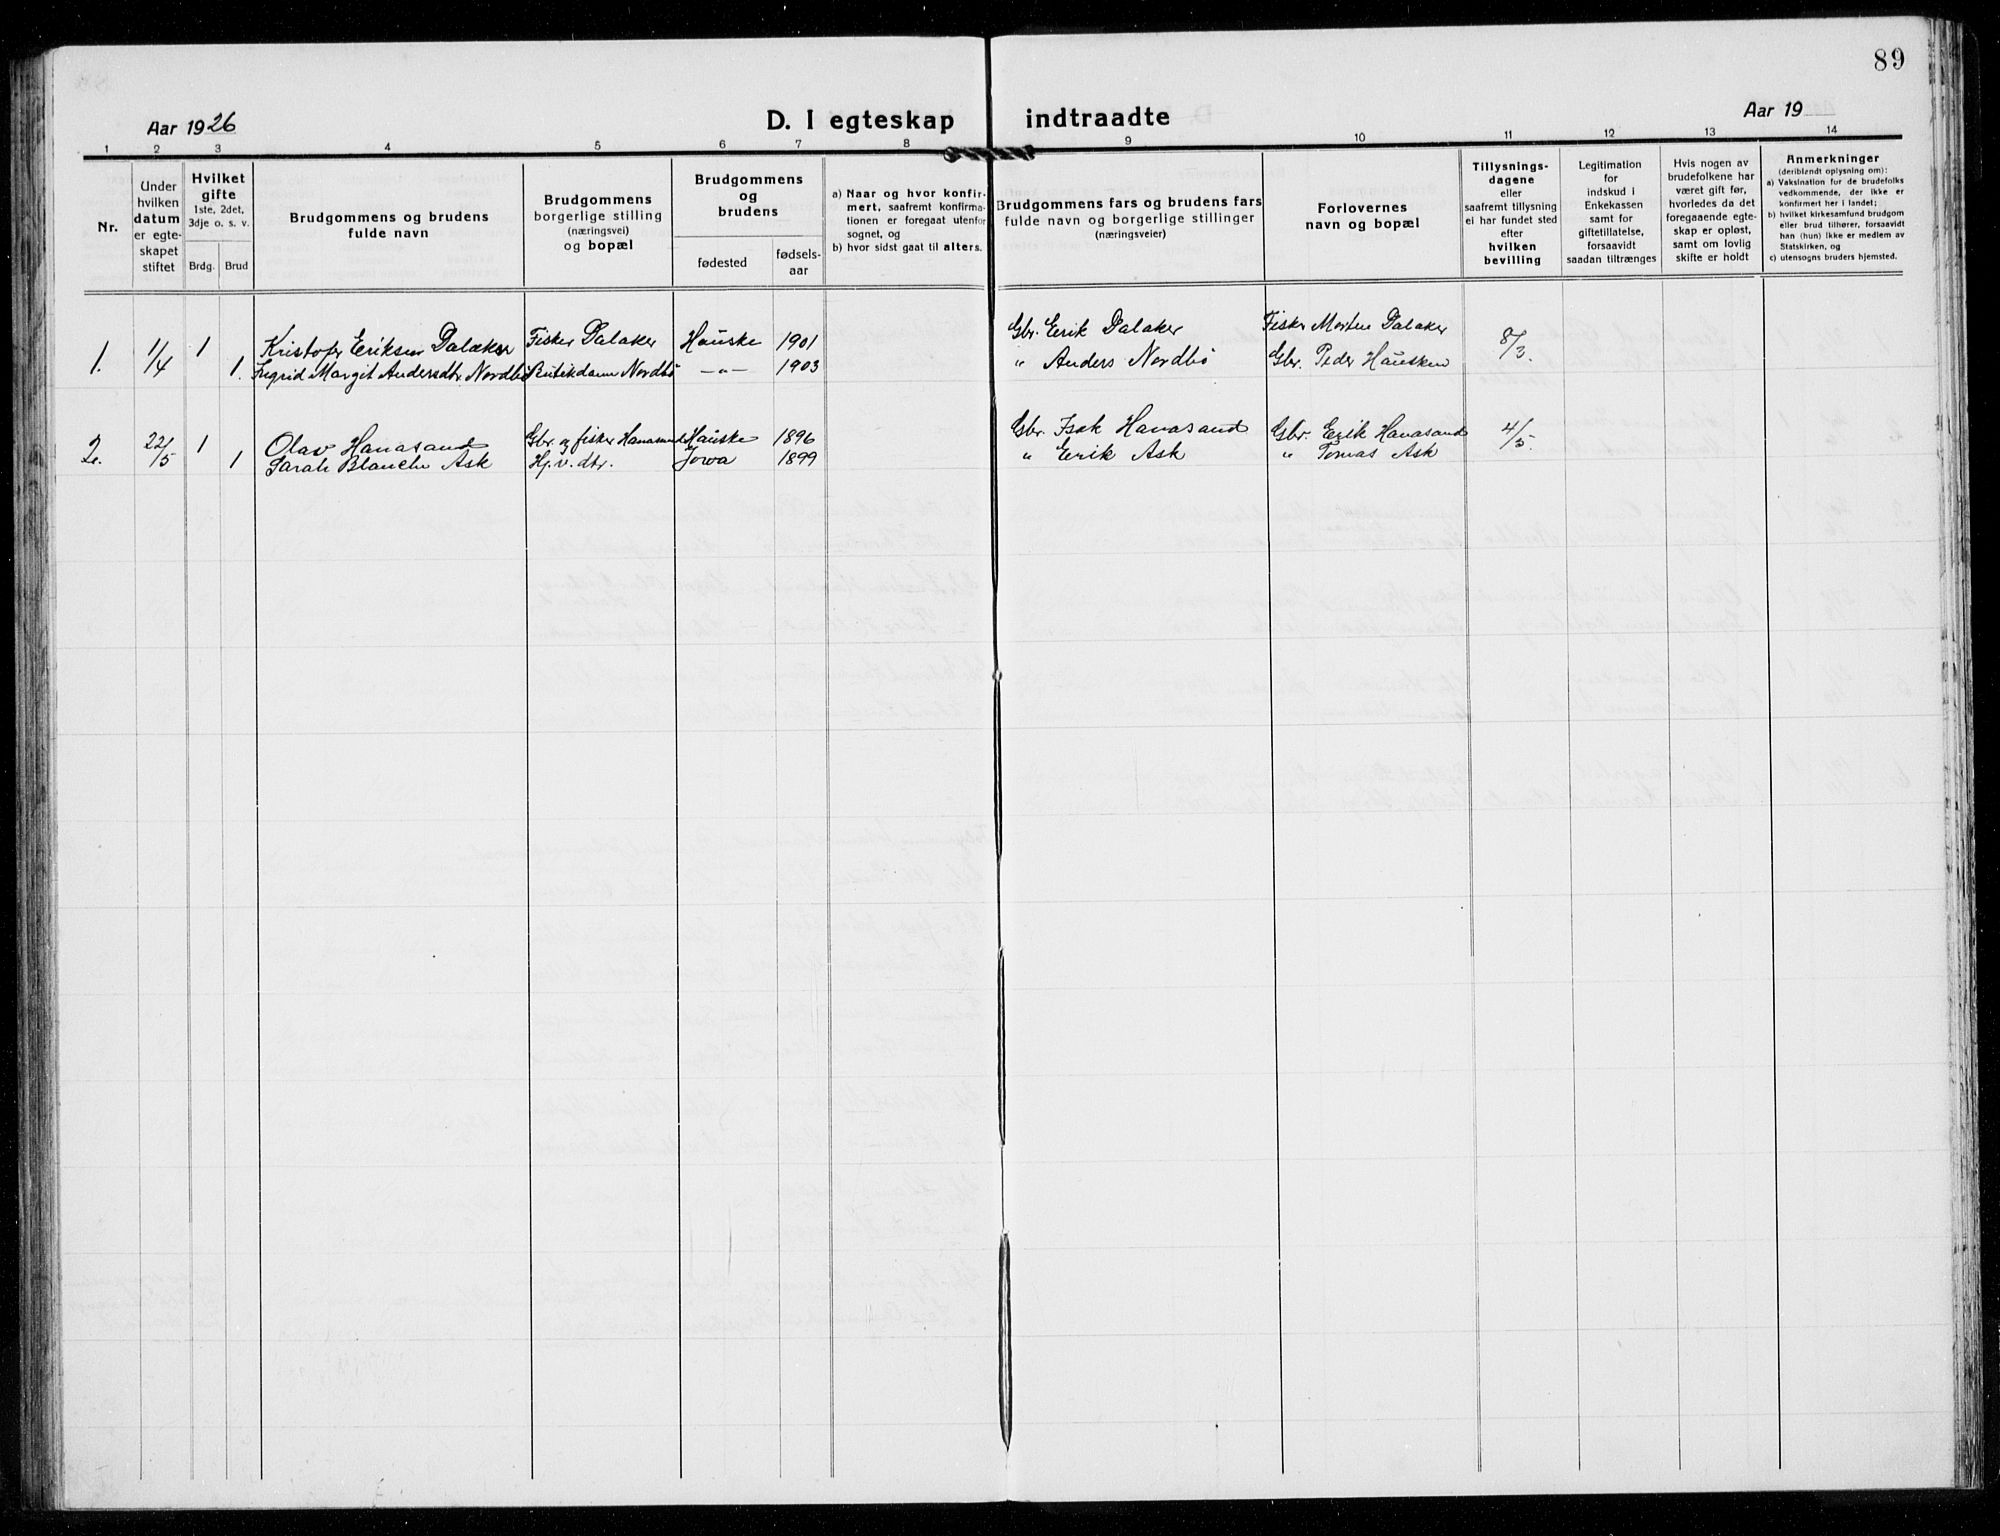 89
Aar 1926
D. I egteskap indtraadte
Aar 19
1 2 3 4 5 6 7 8 9 10 11 12 13 14
Nr.
Under
hvilken
datum
er egte-
skapet
stiftet
Hvilket
gifte
1ste, 2det,
3dje o. s. v.
Brdg. Brud
Brudgommens og brudens
fulde navn
Brudgommens
borgerlige stilling
(næringsvei)
og bopæl
Brudgommens
og
brudens
fødested
fødsels-
aar
a) Naar og hvor konfir-
mert, saafremt konfirma-
tionen er foregaat utenfor
sognet, og
b) hvor sidst gaat til alters.
Brudgommens fars og brudens fars
fulde navn og borgerlige stillinger
(næringsveier)
Forlovernes
navn og bopæl
Tillysnings-
dagene
eller
saafremt tillysning
ei har fundet sted
efter
hvilken
bevilling
Legitimation
for
indskud i
Enkekassen
samt for
giftetillatelse,
forsaavidt
saadan tiltrænges
Hvis nogen av
brudefolkene har
været gift før,
hvorledes da det
foregaaende egte-
skap er opløst,
samt om lovlig
skifte er holdt
Anmerkninger
(deriblandt oplysning om):
a) Vaksination for de brudefolks
vedkommende, der ikke er
konfirmert her i landet;
b) hvilket kirkesamfund brudgom
eller brud tilhører, forsaavidt
han (hun) ikke er medlem av
Statskirken, og
c) utensogns bruders hjemsted.
1. 1/4 1 Kristofer Eriksen Dalaker Fisker Dalaker Hauske 1901 Gbr. Erik Dalaker Fisker Morten Dalaker 8/3.
1. Ingrid Margit Andersdtr. Nordbö Butikdame Nordbö -„- 1903 „ Anders Nordbö Gbr. Peder Hausken
2. 22/5 1 Olav Hanasand Gbr. og fisker Hanasand Hauske 1896 Gbr. Isak Hanasand Gbr. Erik Hanasand 4/5.
1 Sarah Blanche Ask Hj. v. dtr. Jowa 1899 „ Erik Ask „ Tomas Ask